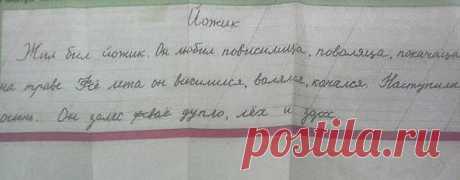 Йожик
Жил был йожик. Он любил повисилица, поваляца, покачаца
на траве Всё лета он висилился, валялся, качался. Наступила
осинь. Он залес фсваё дупло, лёх и здох
postila.ru